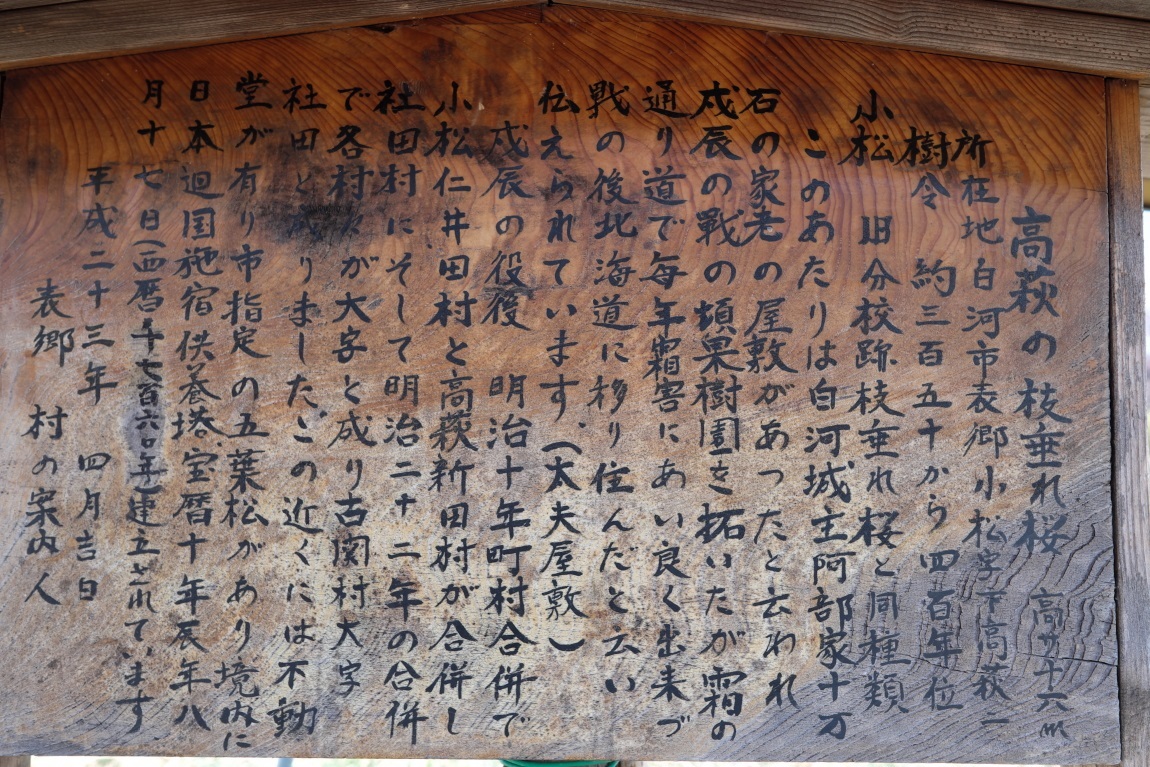 高萩の枝垂れ桜 高サ十六m
所在地白河市表郷小松字下高萩一
樹令 約三百五十から四百年位
小松 旧分校跡枝垂れ桜と同種類
このあたりは白河城主阿部家十万
石の家老の屋敷があったと云われ
戊辰の戦の頃果樹園を拓いたが霜の
通り道で毎年霜害にあい良く出来づ
戦の後北海道に移り住んだと云い
伝えられています。(太夫屋敷)
戊辰の役後 明治十年町村合併で
小松仁井田村と高萩新田村が合併し
社田村にそして明治二十二年の合併
で各村々が大字と成り古関村大字
社田と成りました。この近くには不動
堂が有り市指定の五葉松があり境内に
日本廻国施宿供養塔、宝暦十年辰年八
月十七日(西暦千七百六〇年)建立されています
平成二十三年 四月吉日
表郷 村の案内人